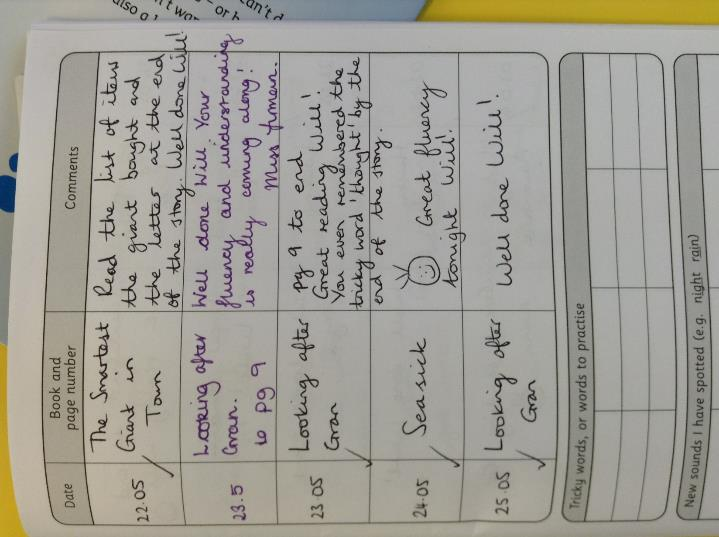 can't d
n't wan
- or h
also a
Date
Book and
page number
Comments
22.05
The Smartest
Giant in
Town
Read the list of items
the giant bought and
the letter at the end
of the story. Well done Will!
23.5
Looking after
Gran.
to pg 9
Well done Will. Your
fluency and understanding
is really coming along!
23.05
Looking after
Gran
pg 9 to end
Great reading Will!
You even remembered the
tricky word 'thought' by the
end of the story.
24.05
Seasick
Great fluency
tonight Will!
25.05
Looking after
Gran
Well done Will!
Tricky words, or words to practise
New sounds I have spotted (e.g. night rain)